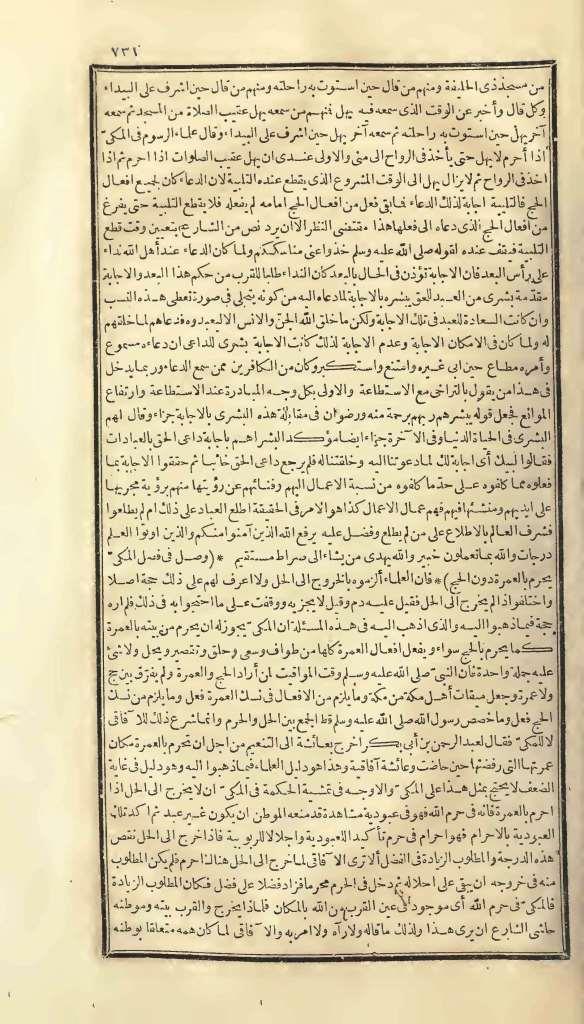 ٧٣١
من مسجد ذى الحليفة ومنهم من قال حين استوت به راحلته ومنهم من قال حين اشرف على البيداء
وكل قال وأخبر عن الوقت الذى سمعه فيه يهل فمنهم من سمعه يهل عقيب الصلاة من المسجد ثم سمعه
آخر يهل حين استوت به راحلته ثم سمعه آخر يهل حين أشرف على البيداء وقال علماء الرسوم فى المكىّ
اذا أحرم لا يهل حتى يأخذ فى الرواح الى منى والاولى عندى ان يهل عقيب الصلوات اذا احرم ثم اذا
اخذ فى الرواح ثم لا يزال يهل الى الوقت المشروع الذى يقطع عنده التلبية لان الدعاء كان لجميع افعال
الحج فالتلبية اجابة لذلك الدعاء فما بقى فعل من افعال الحج امامه لم يفعله فلا يقطع التلبية حتى يفرغ
من افعال الحج الذى دعاه الى فعلها هذا مقتضى النظر الا ان يرد نص من الشارع بتعيين وقت قطع
التلبية فيقف عنده لقوله صلى الله عليه وسلم خذوا عنى مناسككم ولما كان الدعاء عند أهل الله نداء
على رأس البعد فان الاجابة تؤذن فى الحال بالبعد كان النداء طلبا للقرب من حكم هذا البعد والاجابة
مقدّمة بشرى من العبد للحق يبشره بالاجابة لما دعاه اليه من كونه يتجلى فى صورة تعطى هذه النسب
وان كانت السعادة للعبد فى تلك الاجابة ولكن ما خلق الله الجنّ والانس الا ليعبدوه فدعاهم لما خلقهم
له ولما كان فى الامكان الاجابة وعدم الاجابة لذلك كانت الاجابة بشرى للداعى ان دعاءه مسموع
وأمره مطاع حين ابى غيره وامتنع واستكبر وكان من الكافرين ممن سمع الدعاء وربما يدخل
فى هذا من يقول بالتراخى مع الاستطاعة والاولى بكل وجه المبادرة عند الاستطاعة وارتفاع
الموانع فجعل قوله يبشرهم ربهم برحمة منه ورضوان فى مقابلة هذه البشرى بالاجابة جزاء وقال لهم
البشرى فى الحياة الدنيا وفى الآخرة جزاء ايضا مؤكد البشراهم باجابة داعى الحق بالعبادات
فقالوا لبيك أى اجابة لك لما دعوتنا اليه وخلقتنا له فلم يرجع داعى الحق خائبا ثم حققوا الاجابة بما
فعلوه مما كلفوه على حدّ ما كلفوه من نسبة الاعمال اليهم وفنائهم عن رؤيتها منهم برؤية مجريها
على ايديهم ومنشئها فيهم فهم عمال لاعمال كذا هو الامر فى الحقيقة اطلع العباد على ذلك ام لم يطلعوا
فشرف العالم بالاطلاع على من لم يطلع وفضل عليه يرفع الله الذين آمنوا منكم والذين اوتوا العلم
درجات والله بما تعملون خبير والله يهدى من يشاء الى صراط مستقيم * (وصل فى فصل المكىّ
يحرم بالعمرة دون الحج) * فان العلماء ألزموه بالخروج الى الحل ولا اعرف لهم على ذلك حجة اصلا
واختلفوا اذا لم يخرج الى الحل فقيل عليه دم وقيل لا يجزيه ووقفت على ما احتجوا به فى ذلك فلم اره
حجة فيما ذهبوا اليه والذى اذهب اليه فى هذه المسئلة ان المكىّ يجوز له ان يحرم من بيته بالعمرة
كما يحرم بالحج سواء ويفعل افعال العمرة كلها من طواف وسعى وحلق وتقصير ويحل ولا شئ
عليه جملة واحدة فان النبىّ صلى الله عليه وسلم وقت المواقيت لمن أراد الحج والعمرة ولم يفرّق بين حج
ولا عمرة وجعل ميقات أهل مكة من مكة وما يلزم من الافعال فى نسك العمرة فعل وما يلزم من نسك
الحج فعل وما خصص رسول الله صلى الله عليه وسلم قط الجمع بين الحل والحرم وانما شرع ذلك للآفاقى
لا للمكىّ فقال لعبد الرحمن بن أبى بكر اخرج بعائشة الى التنعيم من اجل ان تحرم بالعمرة مكان
عمرتها التى رفضتها حين حاضت وعائشة آفاقية وهذا هو دليل العلماء فيما ذهبوا اليه وهو دليل فى غاية
الضعف لا يحتج بمثل هذا على المكىّ والاوجه فى تمشية الحكمة فى المكىّ ان لا يخرج الى الحل اذا
احرم بالعمرة فانه فى حرم الله فهو فى عبودية مشاهدة قد منعه الموطن ان يكون غير عبد ثم اكد تلك
العبودية بالاحرام فهو احرام فى حرم تأكيد اللعبودية واجلالا للربوبية فاذا خرج الى الحل نقص
هذه الدرجة والمطلوب الزيادة فى الفضل ألا ترى الآفاقى لما خرج الى الحل هنالك احرم فلم يكن المطلوب
منه فى خروجه ان يبقى على احلاله ثم دخل فى الحرم محرما فزاد فضلا على فضل فكان المطلوب الزيادة
فالمكىّ فى حرم الله أى موجود فى عين القرب من الله بالمكان فلماذا يخرج والقرب بيته وموطنه
حاشى الشارع ان يرى هذا ولذلك ما قاله ولا رآه ولا امر به والآفاقى لما كان همه متعلقا بوطنه